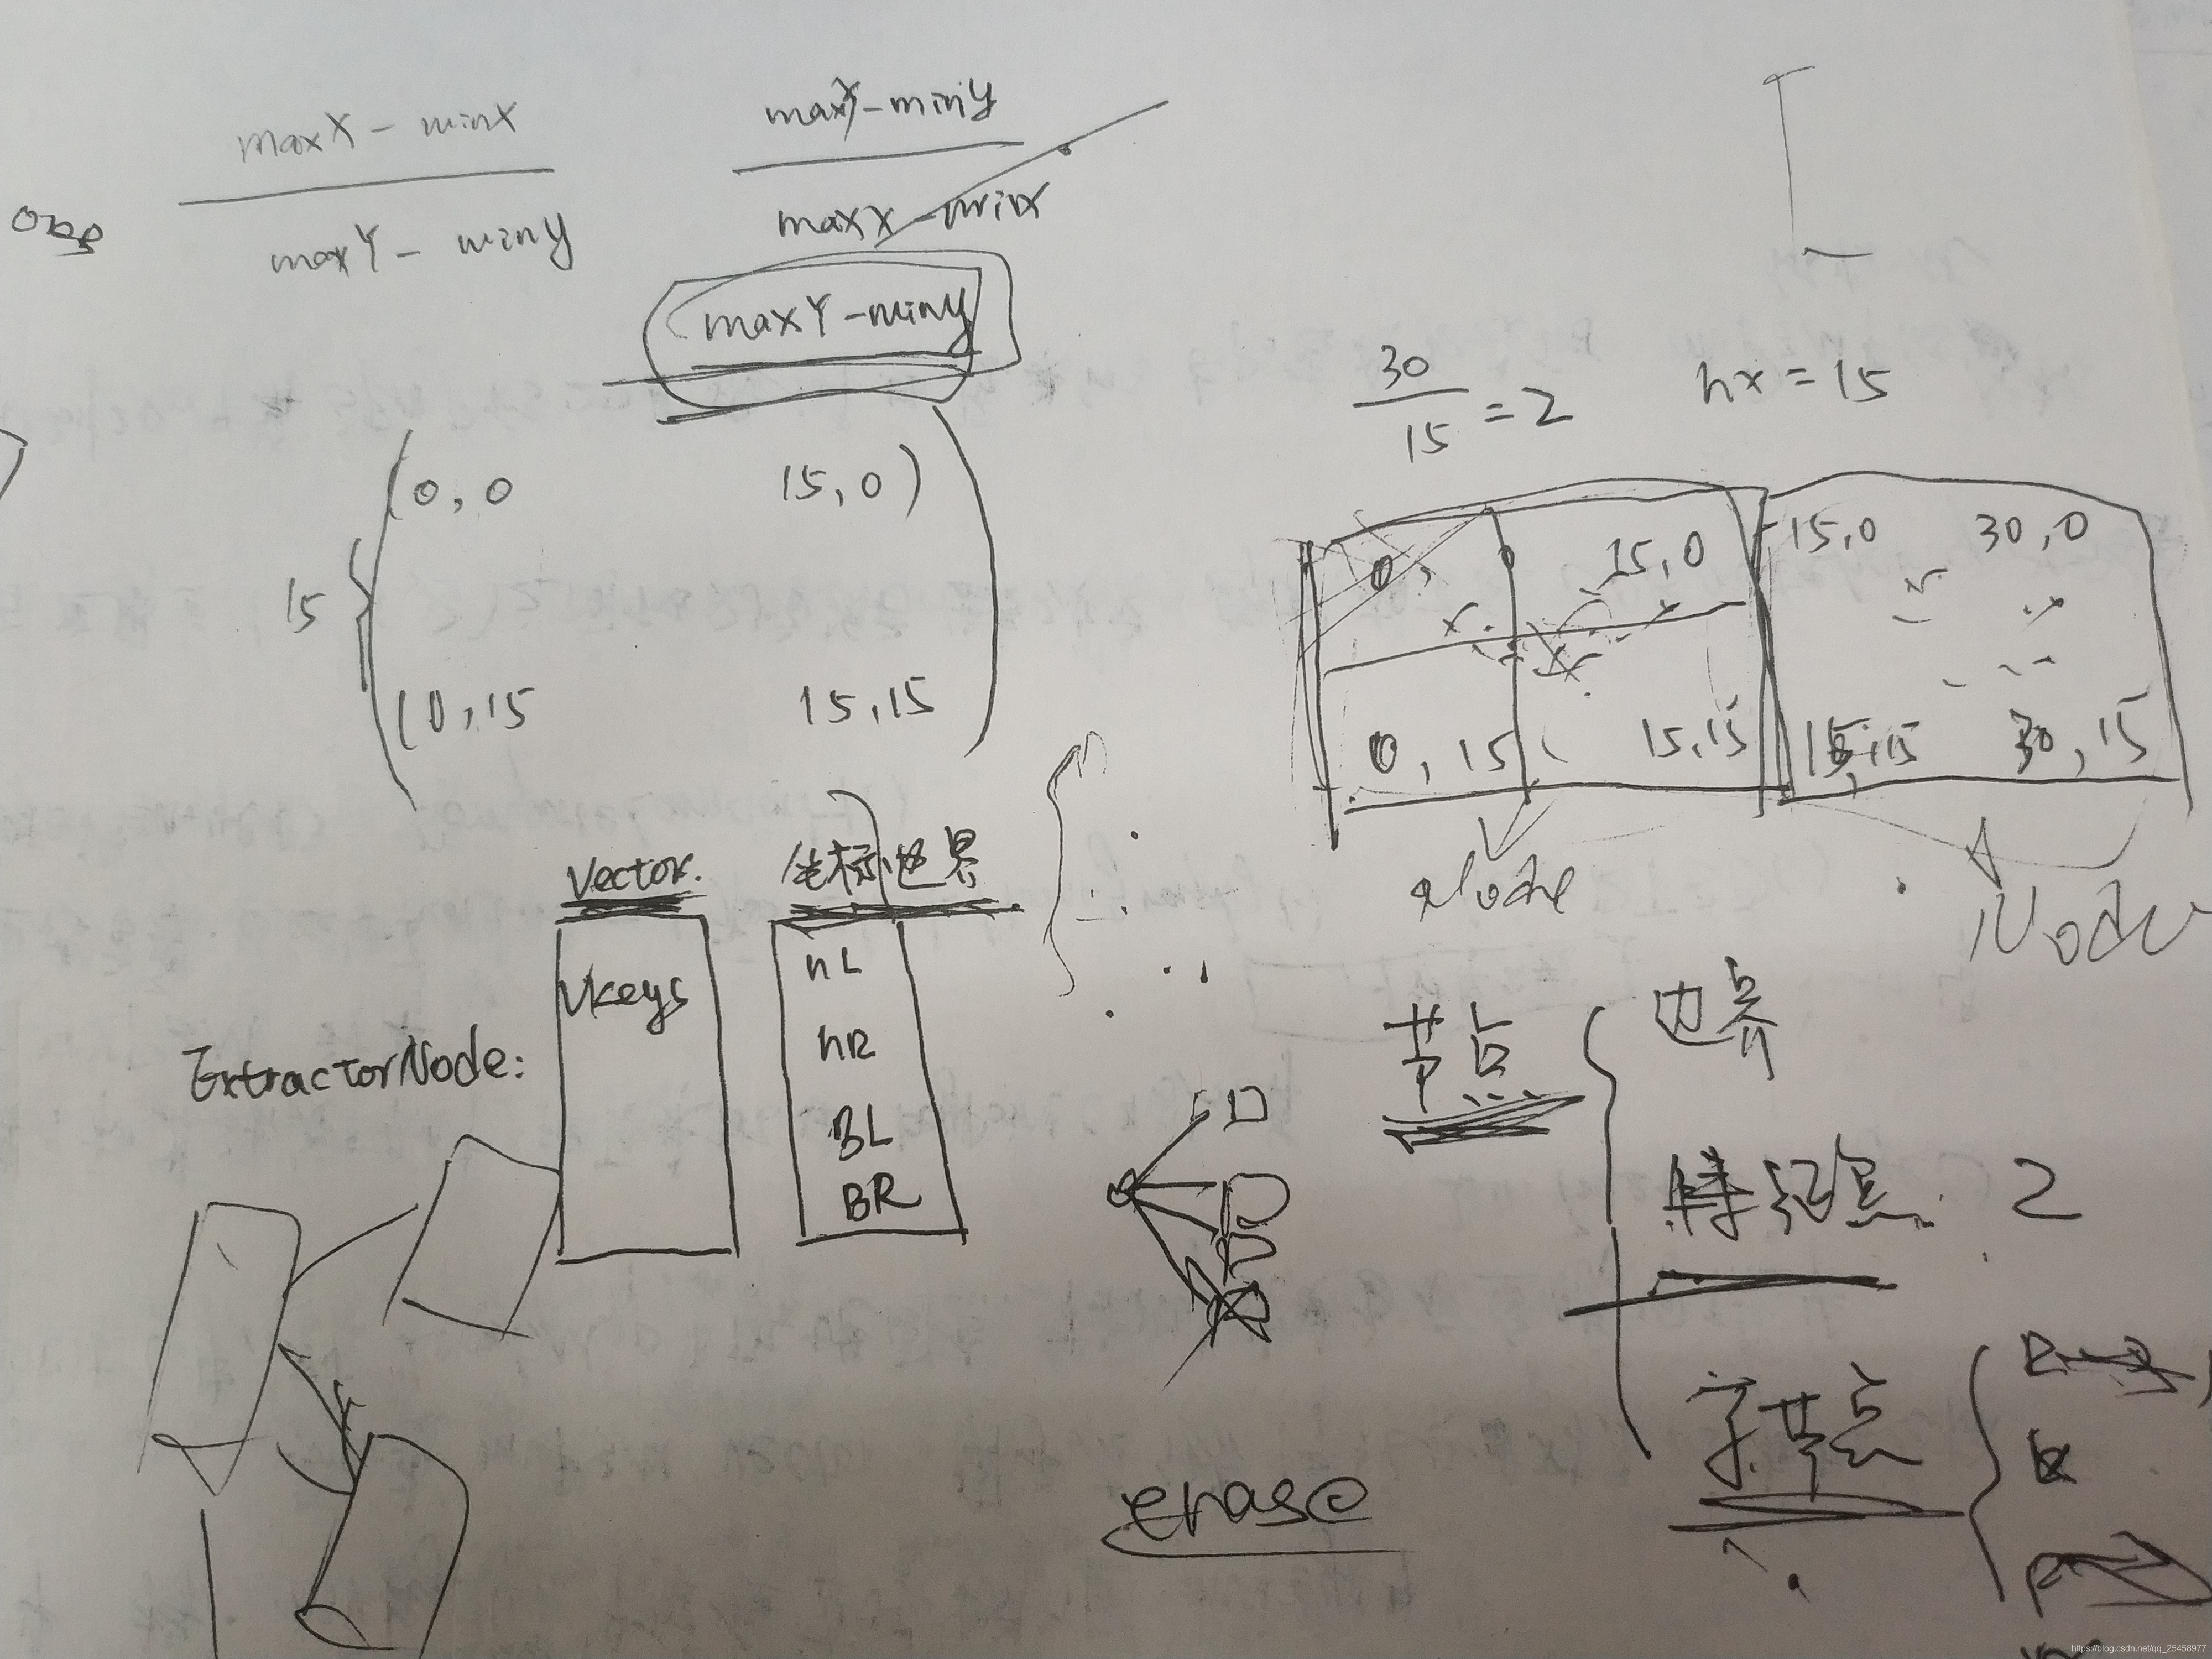 maxX - minX
maxY - miny
maxY - miny
maxX - minx
maxY - miny
30
15
= 2
hx = 15
(0,0 15,0)
15
(0,15 15,15
0, 0 15,0
0,15 15,15
15,0 30,0
15,15 30,15
Node
Node
Vector.
坐标边界
ExtractorNode:
Vkeys
nL
nR
BL
BR
节点
边界
特征点 2
子节点
erase
https://blog.csdn.net/qq_25458977